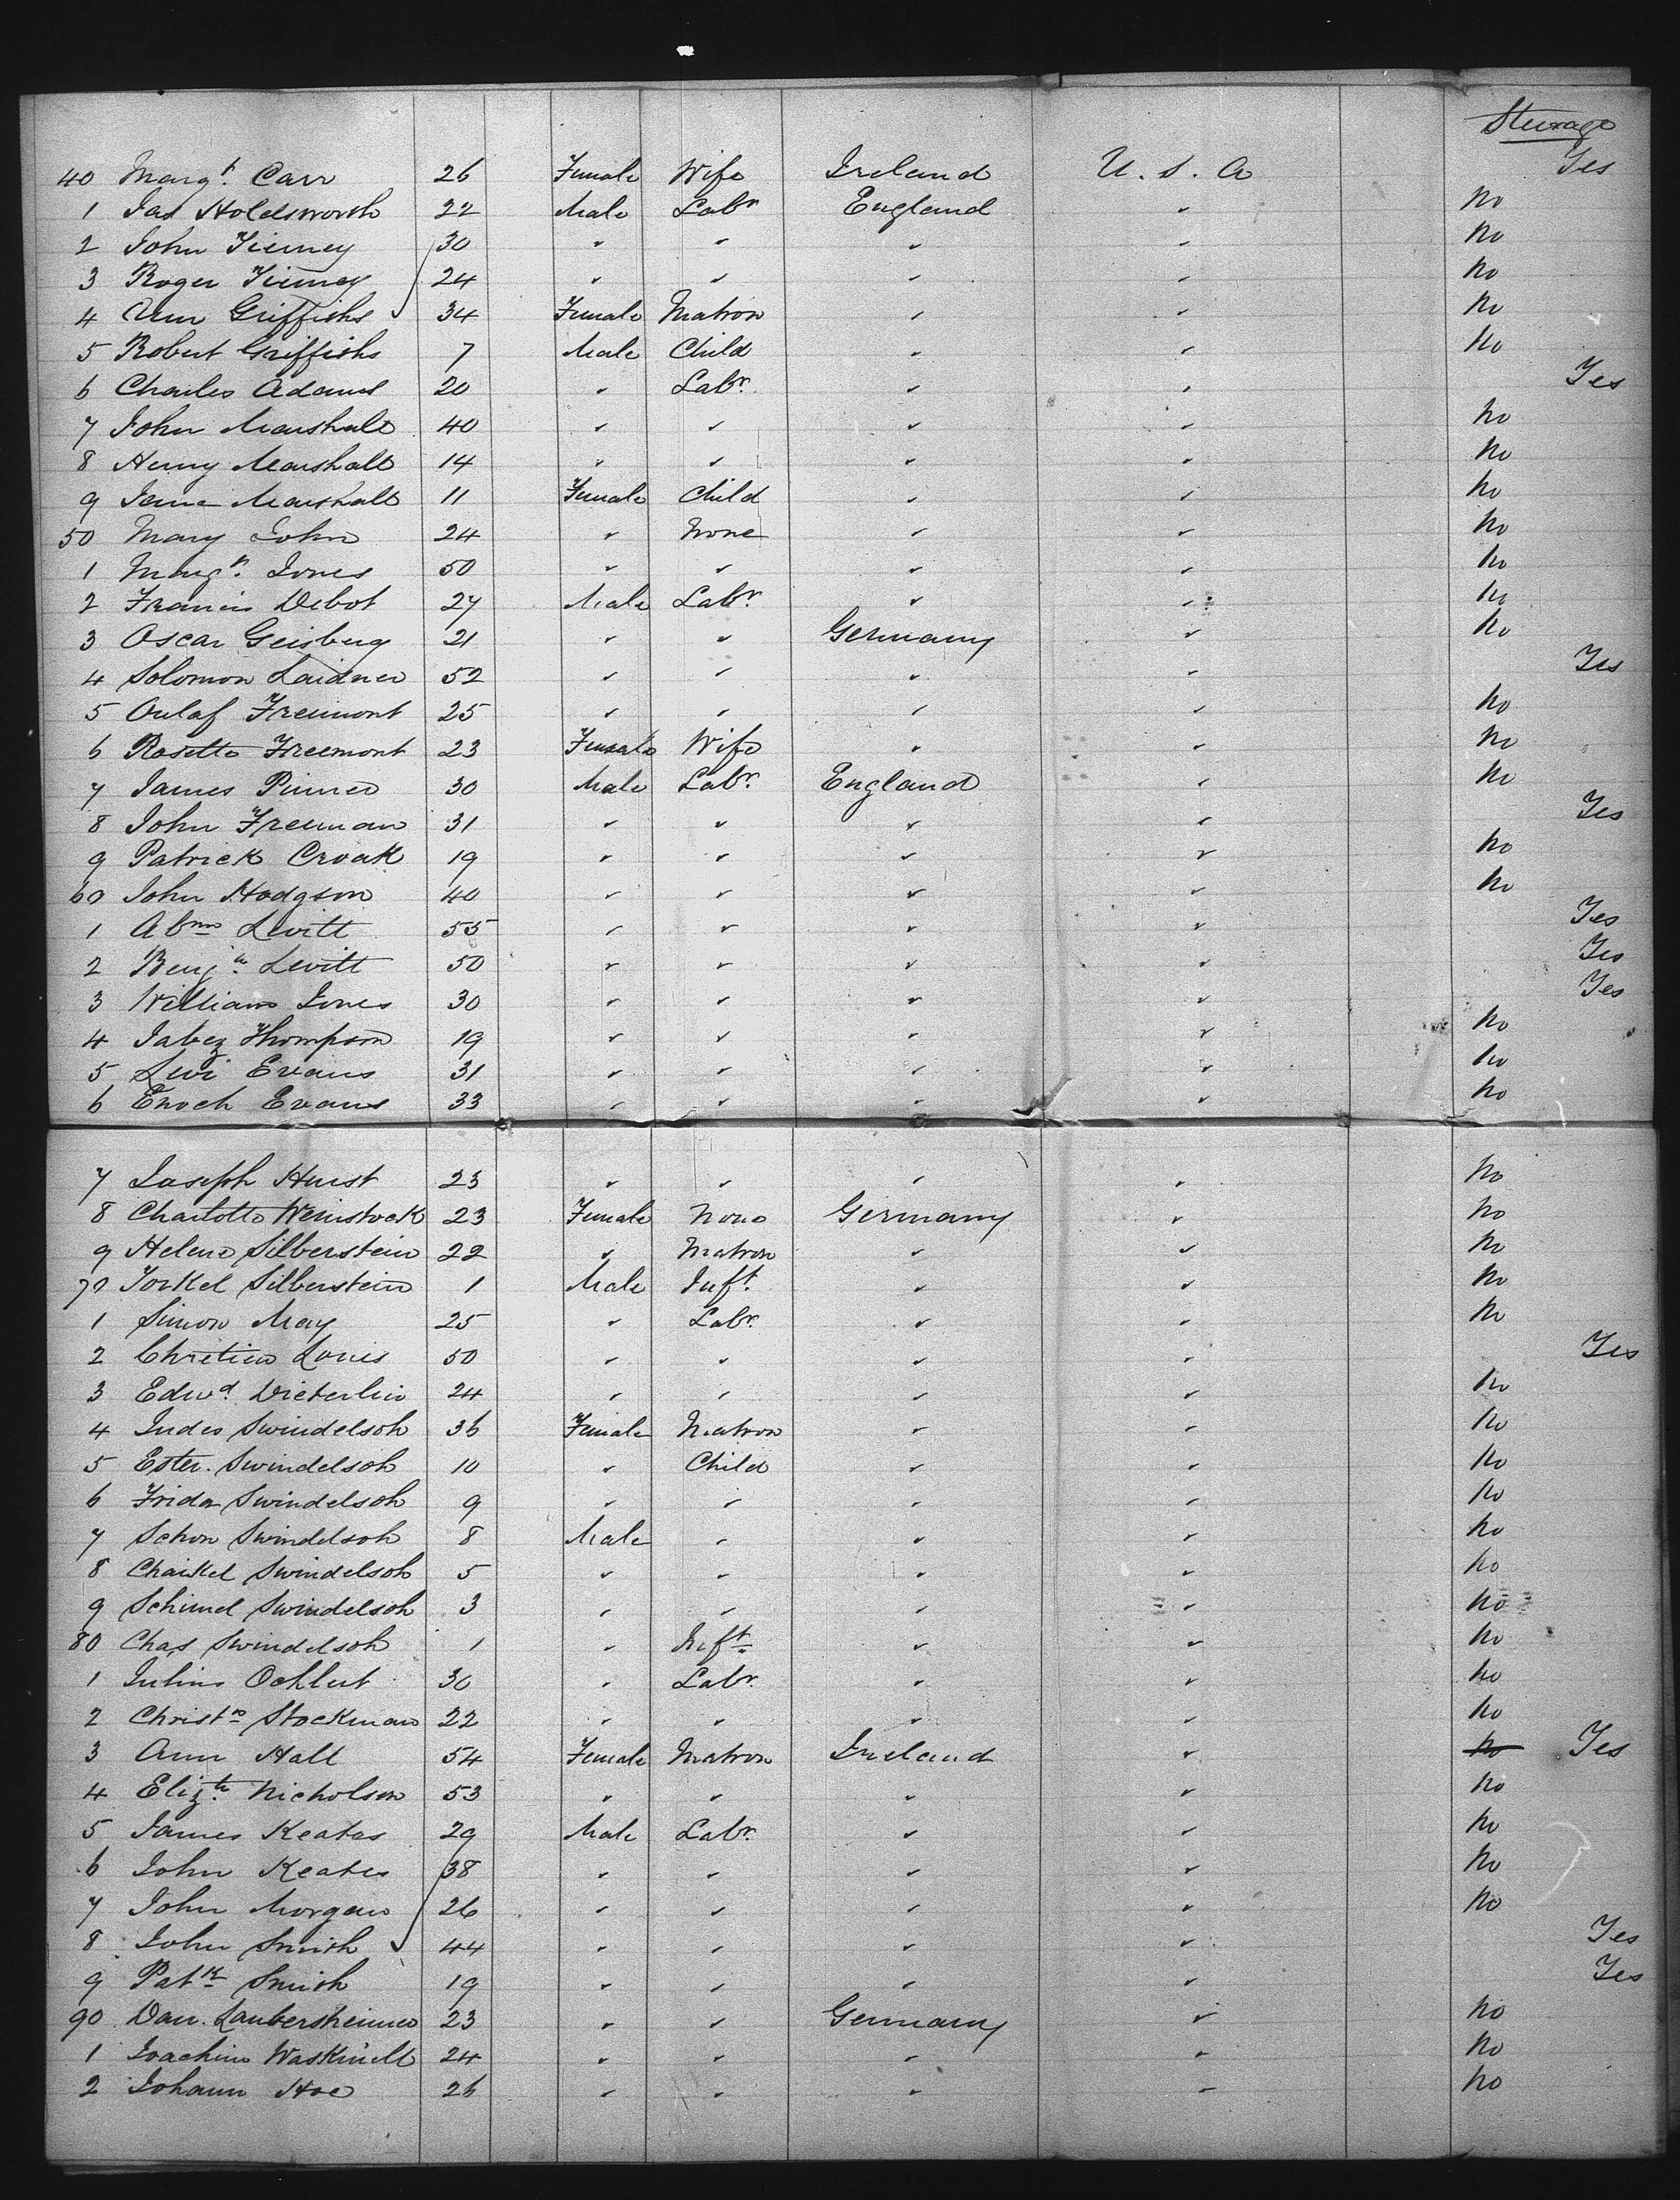 Steerage
40 Margt. Carr 26 Female Wife Ireland U. S. A Yes
1 Jas Holdsworth 22 Male Labr England " No
2 John Tierney 30 " " " " No
3 Roger Tierney 24 " " " " No
4 Ann Griffiths 34 Female Matron " " No
5 Robert Griffiths 7 Male Child " " No
6 Charles Adams 20 " Labr. " " Yes
7 John Marshall 40 " " " " No
8 Henry Marshall 14 " " " " No
9 Jane Marshall 11 Female Child " " No
50 Mary John 24 " None " " No
1 Margt. Jones 50 " " " " No
2 Francis Debot 27 Male Labr. " " No
3 Oscar Geisberg 21 " " Germany " No
4 Solomon Laidner 52 " " " " Yes
5 Oulaf Freemont 25 " " " " No
6 Rosetta Freemont 23 Female Wife " " No
7 James Pinner 30 Male Labr. England " No
8 John Freeman 31 " " " " Yes
9 Patrick Croak 19 " " " " No
60 John Hodgson 40 " " " " No
1 Abm Levitt 55 " " " " Yes
2 Benjn. Levitt 50 " " " " Yes
3 William Jones 30 " " " " Yes
4 Jabez Thompson 19 " " " " No
5 Levi Evans 31 " " " " No
6 Enoch Evans 33 " " " " No
7 Joseph Hurst 23 " " " " No
8 Charlotte Weinstock 23 Female None Germany " No
9 Helene Silberstein 22 " Matron " " No
70 Jorkel Silberstein 1 Male Inft. " " No
1 Simon May 25 " Labr. " " No
2 Chretien Louis 50 " " " " Yes
3 Edwd. Dieterlin 24 " " " " No
4 Judes Swindelsoh 36 Female Matron " " No
5 Ester. Swindelsoh 10 " Child " " No
6 Frida Swindelsoh 9 " " " " No
7 Schon Swindelsoh 8 Male " " " No
8 Chaikel Swindelsoh 5 " " " " No
9 Schimel Swindelsoh 3 " " " " No
80 Chas Swindelsoh 1 " Inft " " No
1 Julius Ochlut 30 " Labr. " " No
2 Christn Stockman 22 " " " " No
3 Ann Hall 54 Female Matron Ireland " No Yes
4 Elizth. Nicholson 53 " " " " No
5 James Keates 29 Male Labr. " " No
6 John Keates 38 " " " " No
7 John Morgan 26 " " " " No
8 John Smith 44 " " " " Yes
9 Patk Smith 19 " " " " Yes
90 Dan. Laubersheimer 23 " " Germany " No
1 Joachim Waskniell 24 " " " " No
2 Johann Hoe 26 " " " " No